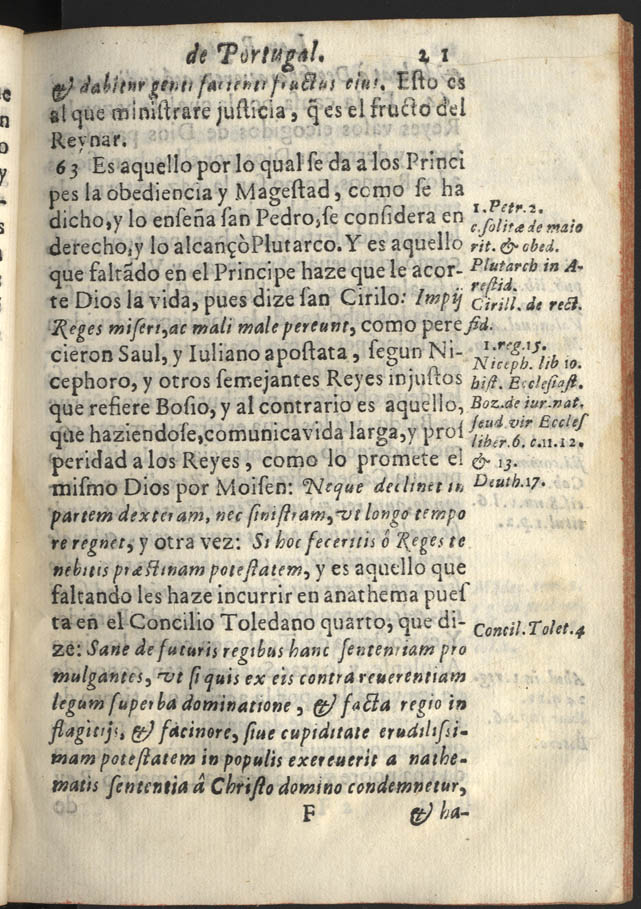 de Portugal. 21
& dabitur genti facienti fructus eius. Esto es
al que ministrare justicia, q̃ es el fructo del
Reynar.
63 Es aquello por lo qual se da a los Princi
pes la obediencia y Magestad, como se ha
dicho, y lo enseña san Pedro, se considera en
derecho, y lo alcançò Plutarco. Y es aquello
que faltãdo en el Principe haze que le acor-
te Dios la vida, pues dize san Cirilo: Impij
Reges miseri, ac mali male pereunt, como pere
cieron Saul, y Iuliano apostata, segun Ni-
cephoro, y otros semejantes Reyes injustos
que refiere Bosio, y al contrario es aquello,
que haziendose, comunica vida larga, y pros
peridad a los Reyes, como lo promete el
mismo Dios por Moisen: Neque declinet in
partem dexteram, nec sinistram, vt longo tempo
re regnet, y otra vez: Si hoc feceritis ô Reges te
nebitis præstinam potestatem, y es aquello que
faltando les haze incurrir en anathema pues
ta en el Concilio Toledano quarto, que di-
ze: Sane de futuris regibus hanc sententiam pro
mulgantes, vt si quis ex eis contra reuerentiam
legum superba dominatione, & facta regio in
flagitijs, & facinore, siue cupiditate erudilissi-
mam potestatem in populis exereuerit a nathe-
matis sententia â Christo domino condemnetur,
F & ha-
1. Petr. 2.
c. solitæ de maio
rit. & obed.
Plutarch in A-
restid.
Cirill. de rect.
fid.
1. reg. 15.
Niceph. lib 10.
hist. Ecclesiast.
Boz. de iur. nat.
feud. vir Eccles
liber. 6. c. 11. 12.
& 13.
Deuth. 17.
Concil. Tolet. 4